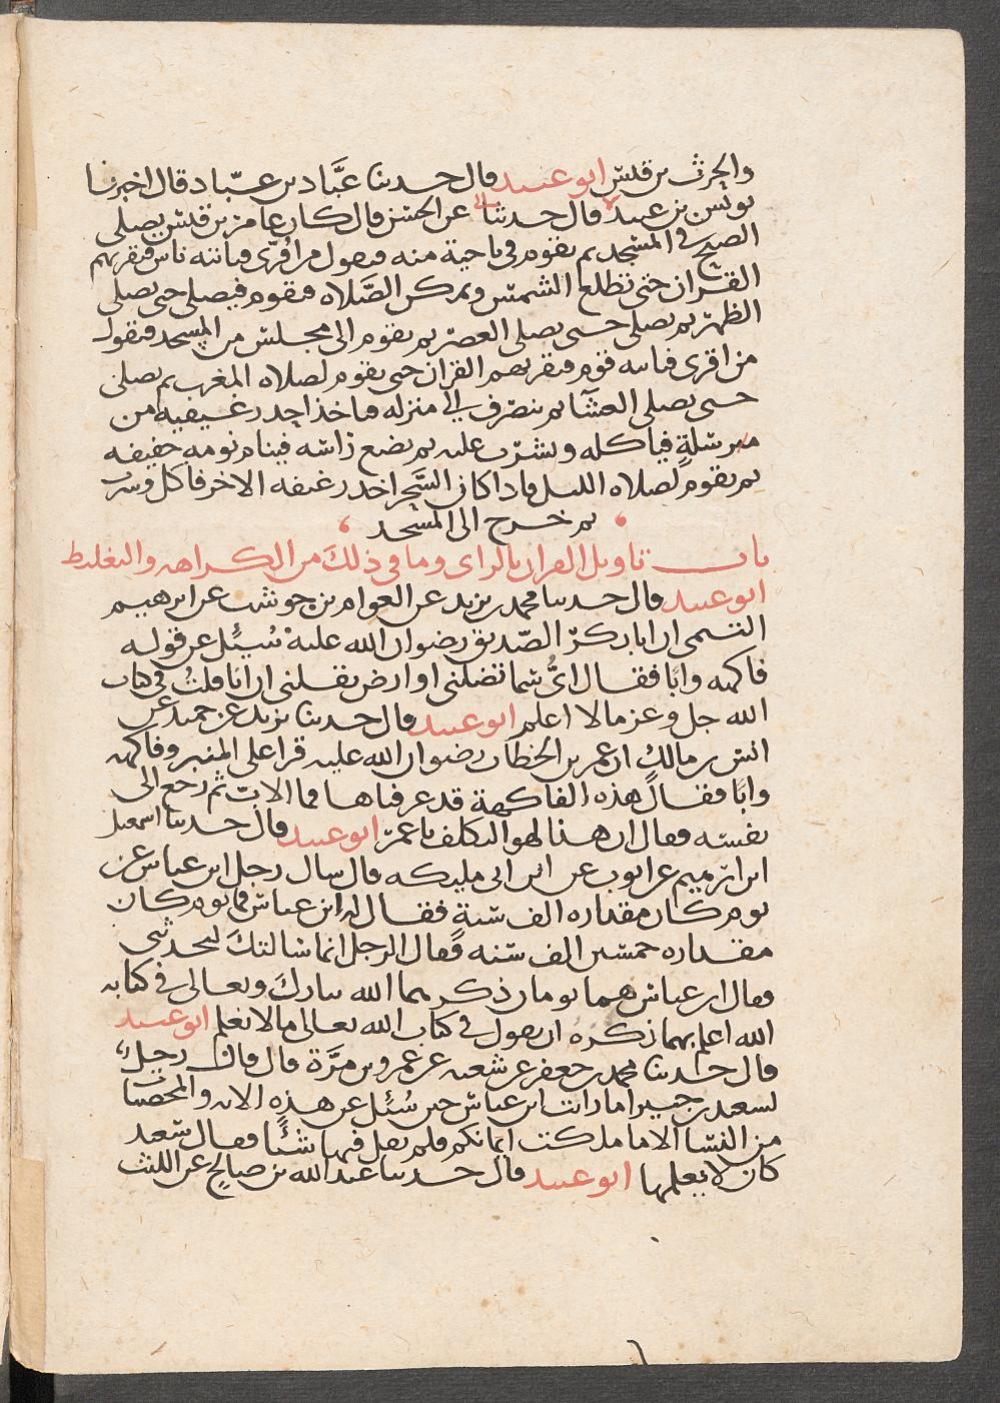 والحرث بن قيس ابو عبيد قال حدثنا عبَّاد بن عبّاد قال اخبرنا
يونس بن عبيد قال حدثنا عن الحسن قال كان عامر بن قيس يصلي
الصبح في المسجد ثم يقوم في ناحية منه فيقول من اُقرى فياتيه ناس فيقريهم
القران حتى تطلع الشمس وتمكن الصّلاه فيقوم فيصلي حتى يصلي
الظهر ثم يصلي حتى يصلي العصر ثم يقوم الى مجلسه من المسجد فيقول
من اقرى فياتيه قوم فيقريهم القران حتى يقوم لصلاه المغرب ثم يصلي
حتى يصلي العشا ثم ينصرف الى منزله فياخذ احد رغيفيه من
سلة فياكله ويشرب عليه ثم يضع راسه فينام نومه خفيفه
ثم يقوم لصلاه الليل فاذا كان السَّحر اخذ رغيفه الاخر فاكل وشرب
ثم خرج الى المسجد
باب تاويل القران بالراى وما في ذلك من الكراهه والتغليظ
ابو عبيد قال حدثنا محمد بن يزيد عن العوام بن حوشب عن ابرهيم
التيمي ان ابا بكر الصّديق رضوان الله عليه سُئِل عن قوله
فاكهه وابًا فقال اىُّ سما تضلني او ارض تقلني ان انا قلتُ في كتاب
الله جل وعز مالا اعلم ابو عبيد قال حدثنا يزيد عن حميد عن
انس بن مالك ان عمر بن الخطاب رضوان الله عليه قرا على المنبر وفاكهه
وابًا فقال هذه الفاكهة قد عرفناها فما الابّ ثم رجع الى
نفسه فقال ان هذا لهو التكلف يا عمر ابو عبيد قال حدثنا اسمعيل
ابن ابرهيم عن ايوب عن ابن ابى مليكه قال سال رجل ابن عباس عن
يوم كان مقداره الف سنةٍ فقال له ابن عباس فما يوم كان
مقداره خمسين الف سنه فقال الرجل انما سالتك لتحدثني
فقال ابن عباس هما يومان ذكرهما الله تبارك وتعالى في كتابه
الله اعلم بهما فكره ان يقول في كتاب الله تعالى مالا يعلم ابو عبيد
قال حدثنا محمد بن جعفر عن شعبه عن عمرو بن مرَّة قال قال رجل
لسعيد بن جبير اما رايت ابن عباس حين سُئِل عن هذِه الايه والمحصنات
من النسا الا ما ملكت ايمانكم فلم يقل فيها شيًا فقال سعيد
كان لا يعلمها ابو عبيد قال حدثنا عبد الله بن صالح عن الليث